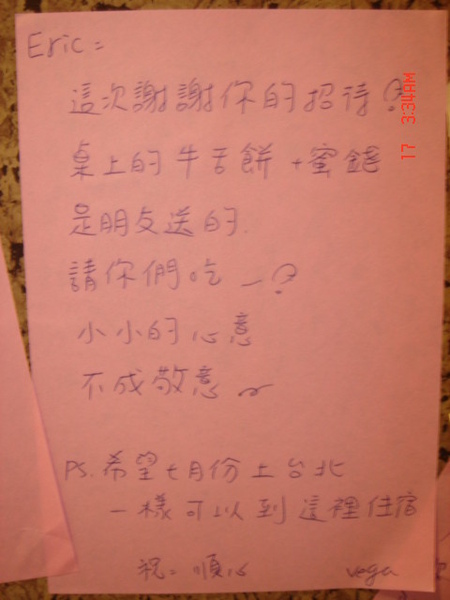 Eric=
這次謝謝你的招待
桌上的牛舌餅+蜜餞
是朋友送的.
請你們吃
小小的心意
不成敬意
PS.希望七月份上台北
一樣可以到這裡住宿
祝=順心
vega
17 3:34AM